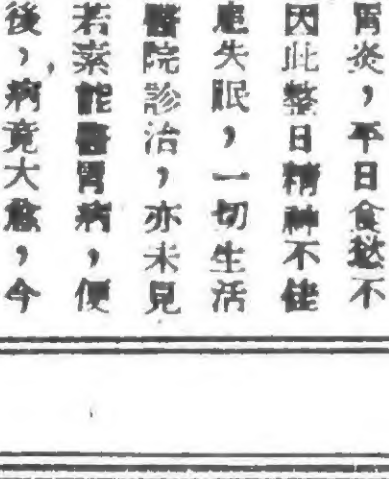 胃炎，平日食慾不
因此整日精神不佳
患失眠，一切生活
醫院診治，亦未見
若素能醫胃病，便
後，病竟大愈，今